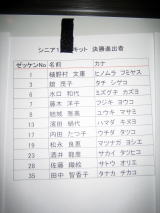 シニア1 キット 決勝進出者
ゼッケンNo 名前 カナ
1 樋野村 文車 ヒノムラ フミヤス
3 舘 茂子 タチ シゲコ
6 水口 和代 ミズグチ カズヨ
7 藤木 洋子 フジキ ヨウコ
8 結城 雅高 ユウキ マサコ
13 濱田 絹代 ハマダ キヌヨ
17 内田 たつ子 ウチダ タツコ
19 松永 良恵 マツナガ ヨシエ
23 酒井 龍彦 サカイ タツヒコ
28 佐藤 織絵 サトウ オリエ
35 田中 智香子 タナカ チカコ